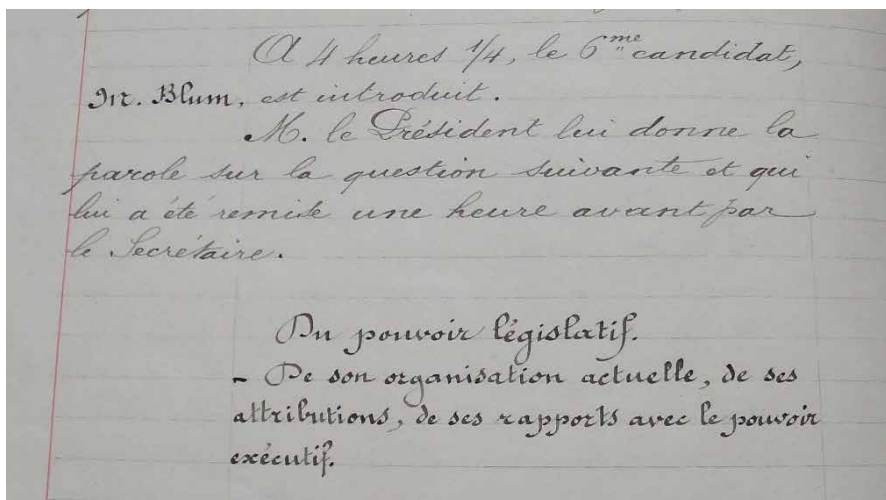 A 4 heures 1/4, le 6me candidat,
M. Blum, est introduit.
M. le Président lui donne la
parole sur la question suivante et qui
lui a été remise une heure avant par
le Secrétaire.
Du pouvoir législatif.
- De son organisation actuelle, de ses
attributions, de ses rapports avec le pouvoir
exécutif.